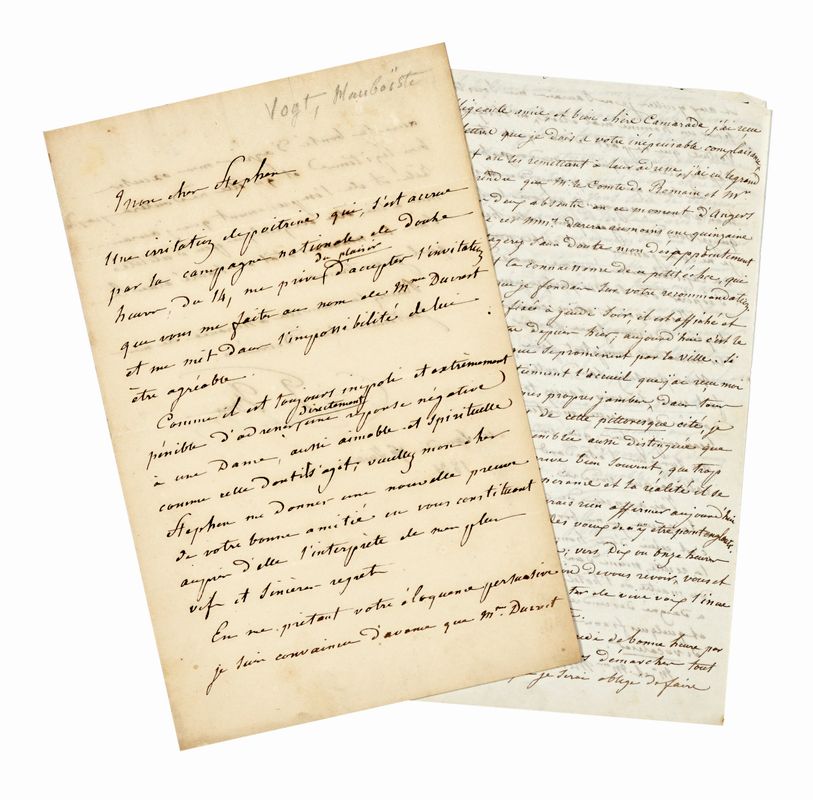 Vogt, Hauboïste
Mon cher Stephen
Une irritation de poitrine qui, s'est accrue
par la campagne nationale de douze
heures du 14, me prive d'accepter l'invitation
du plaisir
que vous me faites au nom de Mme Ducrest
et me met dans l'impossibilité de lui
être agréable.
Comme il est toujours impoli et extrêmement
pénible d'adresser une réponse négative
directement
à une Dame, aussi aimable et spirituelle
comme celle dont il s'agit, veuillez mon cher
Stephen me donner une nouvelle preuve
de votre bonne amitié en vous constituant
auprès d'elle l'interprète de mes plus
vifs et sincères regrets.
En me prêtant votre éloquence persuasive
je suis convaincu d'avance que Mme Ducrest
amie et bien chère Camarade j'ai reçu
lettre que je dois à votre inépuisable complaisance,
en les remettant à leur adresse, j'ai eu le grand
que Mr le Comte de Romain et Mr
deux absents en ce moment d'Angers
ces MMrs d'ici au moins une quinzaine
sans doute mon désappointement
la connaissance de
que je fondais sur votre recommandation
fixé à jeudi soir il est affiché et
depuis hier, aujourd'hui c'est le
qui se promènent par la ville. Si
l'accueil que j'ai reçu moi
propres jambes, dans tous
de cette pittoresque cité, je
aussi distinguée que
bien souvent, que trop
et la réalité et de
rien affirmer aujourd'hui
des vœux de être point
vers Dix ou onze heures
de vous revoir, vous et
de vive voix
de bonne heure par
démarches tout
je serai obligé de faire